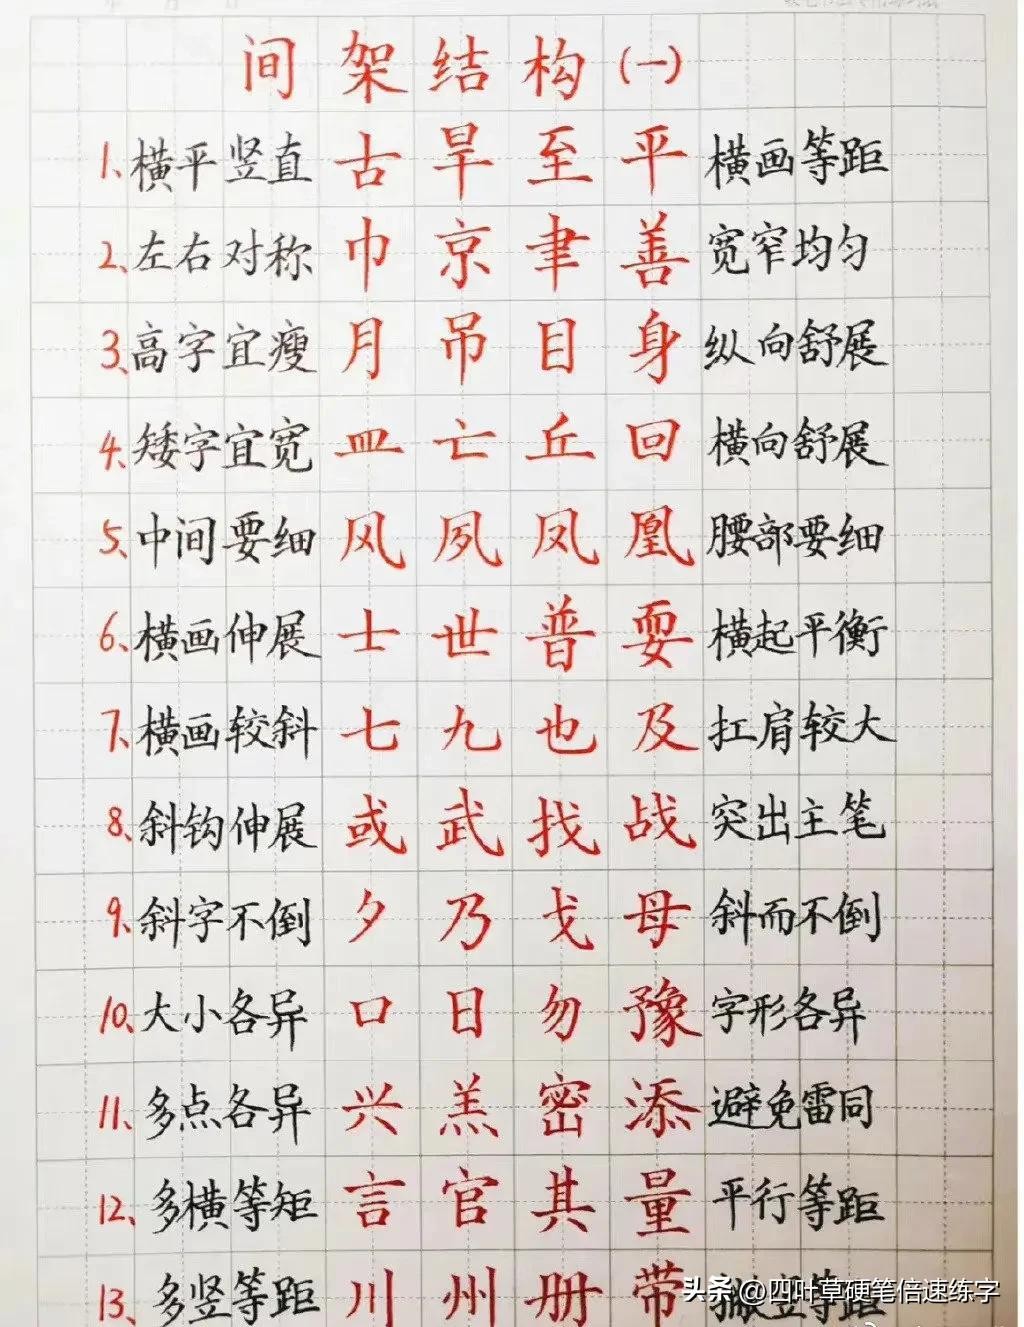 间架结构(一)
1、横平竖直 古旱至平 横画等距
2、左右对称 巾京聿善 宽窄均匀
3、高字宜瘦 月吊目身 纵向舒展
4、矮字宜宽 皿亡丘回 横向舒展
5、中间要细 风夙凤凰 腰部要细
6、横画伸展 士世普耍 横起平衡
7、横画较斜 七九也及 扛肩较大
8、斜钩伸展 或武找战 突出主笔
9、斜字不倒 夕乃戈母 斜而不倒
10、大小各异 口日勿豫 字形各异
11、多点各异 兴羔密添 避免雷同
12、多横等矩 言官其量 平行等距
13、多竖等距 川州册带 竖等距
头条 @四叶草硬笔倍速练字